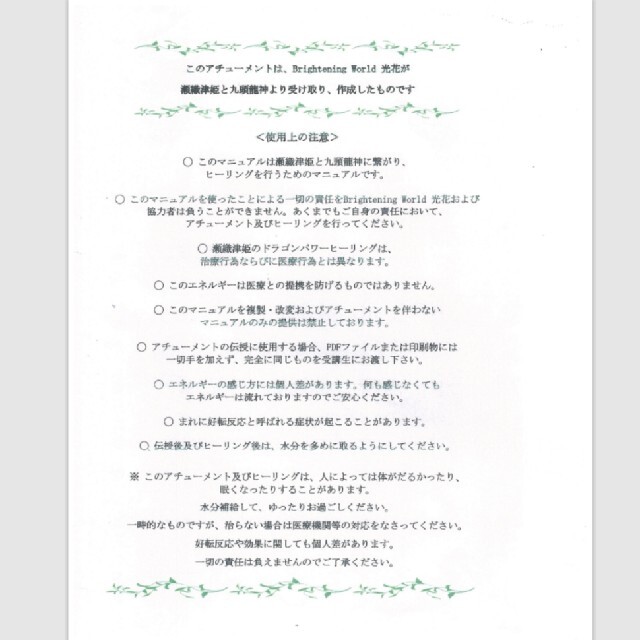 このアチューメントは、Brightening World 光花が
瀬織津姫と九頭龍神より受け取り、作成したものです
＜使用上の注意＞
○ このマニュアルは瀬織津姫と九頭龍神に繋がり、
ヒーリングを行うためのマニュアルです。
○ このマニュアルを使ったことによる一切の責任をBrightening World 光花および
協力者は負うことができません。あくまでもご自身の責任において、
アチューメント及びヒーリングを行ってください。
○ 瀬織津姫のドラゴンパワーヒーリングは、
治療行為ならびに医療行為とは異なります。
○ このエネルギーは医療との提携を防げるものではありません。
○ このマニュアルを複製・改変およびアチューメントを伴わない
マニュアルのみの提供は禁止しております。
○ アチューメントの伝授に使用する場合、PDFファイルまたは印刷物には
一切手を加えず、完全に同じものを受講生にお渡し下さい。
○ エネルギーの感じ方には個人差があります。何も感じなくても
エネルギーは流れておりますのでご安心ください。
○ まれに好転反応と呼ばれる症状が起こることがあります。
○ 伝授後及びヒーリング後は、水分を多めに取るようにしてください。
※ このアチューメント及びヒーリングは、人によっては体がだるかったり、
眠くなったりすることがあります。
水分補給して、ゆったりお過ごしください。
一時的なものですが、治らない場合は医療機関等の対応をなさってください。
好転反応や効果に関しても個人差があります。
一切の責任は負えませんのでご了承ください。